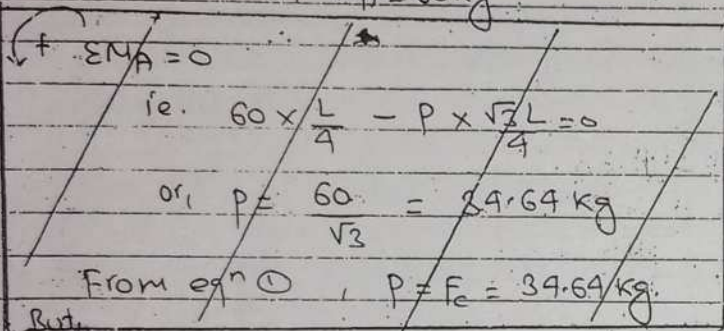 + ΣMA = 0
ie. 60 × L/4 - P × √3 L/4 = 0
or, P = 60/√3 = 34.64 kg
From eqn ① , P = Fc = 34.64 kg.
But,